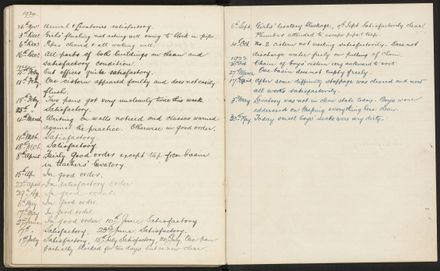 1920.
24th Nov. Urinal & lavatories satisfactory.
3rd Dec. Girls' flushing not acting well owing to block in pipe
6th Dec. Pipes cleared & all working well.
16th Dec. All parts of both buildings in clean and
satisfactory condition.
Feby. Out offices quite satisfactory.
11th Feby. One cistern appeared faulty and does not easily
flush.
18th Feby. Two pans got very unclean this week
Satisfactory.
11th March Writing on walls noticed and classes warned
against the practice. Otherwise in good order.
Satisfactory.
Satisfactory.
April Fairly Good order except tap from basin
in teachers' lavatory.
15th Ap. In good order.
In Satisfactory order
29th Ap. In good order.
6th May In good order.
May In good order
June In good order. 10th June Satisfactory
17th Satisfactory. June Satisfactory.
1st July Satisfactory. July Satisfactory. July One pan
partially blocked for two days but is now clear.
Sept. Girls' lavatory blockage, Sept Satisfactorily clear.
Plumber attended to scrape pipes & tap.
Oct. No. 2 cistern not working satisfactorily. Does not
discharge water freely on pulling of chain
Chain of boys' cistern very awkward to work.
March One basin does not empty freely.
April After some difficulty stoppage was cleared and now
all works satisfactorily.
May Lavatory was not in clean state today. Boys were
addressed on keeping everything here clean
May Today small boys' seats were dirty.